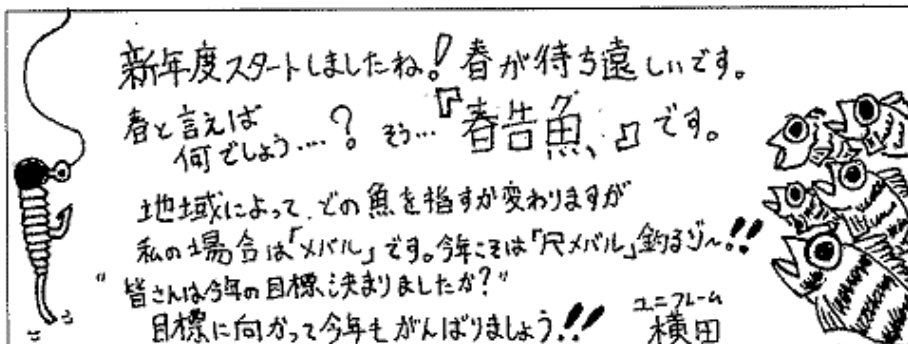 新年度スタートしましたね!春が待ち遠しいです。
春と言えば
何でしょう…?そう…『春告魚』です。
地域によって、どの魚を指すか変わりますが
私の場合は「メバル」です。今年こそは「尺メバル」釣るゾ〜!!
"皆さんは今年の目標決まりましたか?"
目標に向かって今年もがんばりましょう!!
ユニフレーム
横田